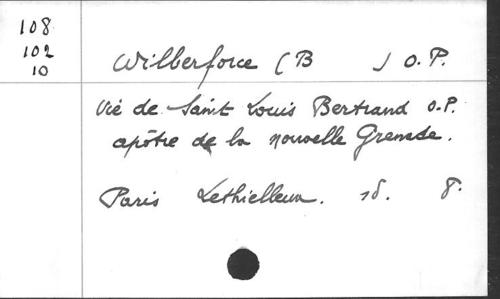 108
102
10
Wilberforce (B ) O.P.
Vie de Saint Louis Bertrand O.P.
apôtre de la nouvelle Grenade.
Paris Lethielleux. 8.